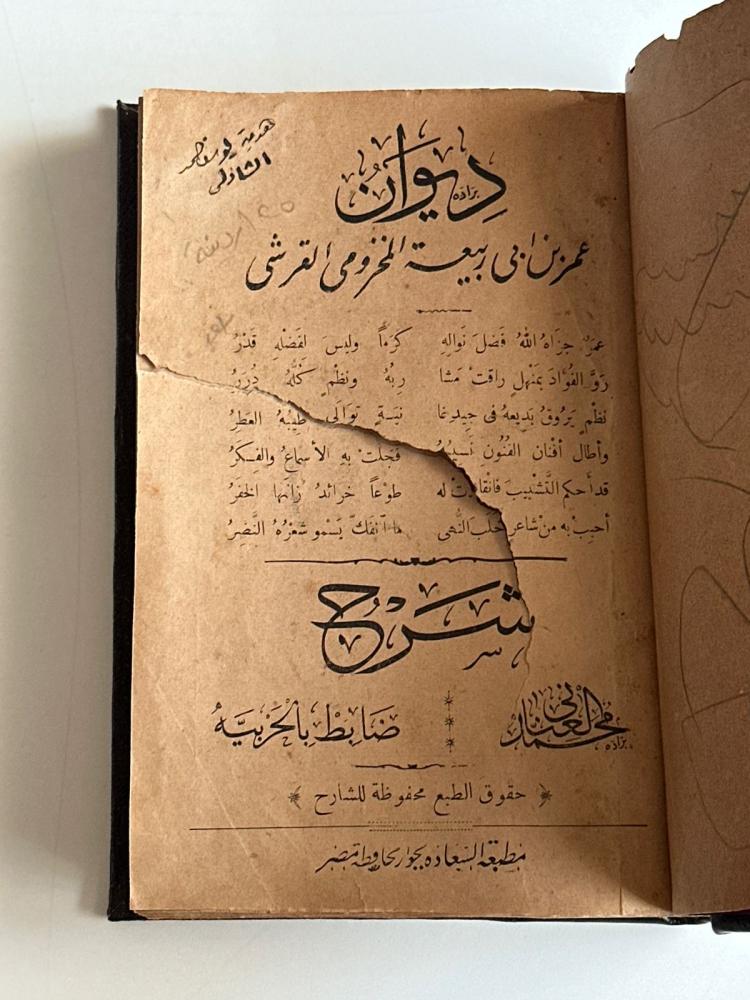 هدية يوسف
الشاذلى
ديوان
عمر بن ابى ربيعة المخزومى القرشى
عمرٌ جزاهُ اللهُ فضلَ نوالهِ كرَماً وليس لفضلهِ قدْرُ
رَوِّ الفُؤادَ بمنْهلٍ راقتْ مشا ربُهُ ونظْمٍ كلُّهُ دُرَرُ
نظْمٍ يَرُوقُ بديعهُ فى جيدِ غا نيَةٍ توَالَى طيبُهُ العطرُ
وأطال أفْنانَ الفُنُونِ فجلتْ بهِ الأسماعُ والفكَرُ
قد أحكم التّشبيبَ فانْقادتْ له طوْعاً خرائدُ زانها الخفرُ
أحبِبْ به منْ شاعرٍ خلَبَ النُّهى ما انفكَّ يَسْمو شعْرُهُ النَّضِرُ
شرح
محمد العنانى ضابط بالحربيه
حقوق الطبع محفوظة للشارح
مطبعة السعاده بجوار محافظة مصر